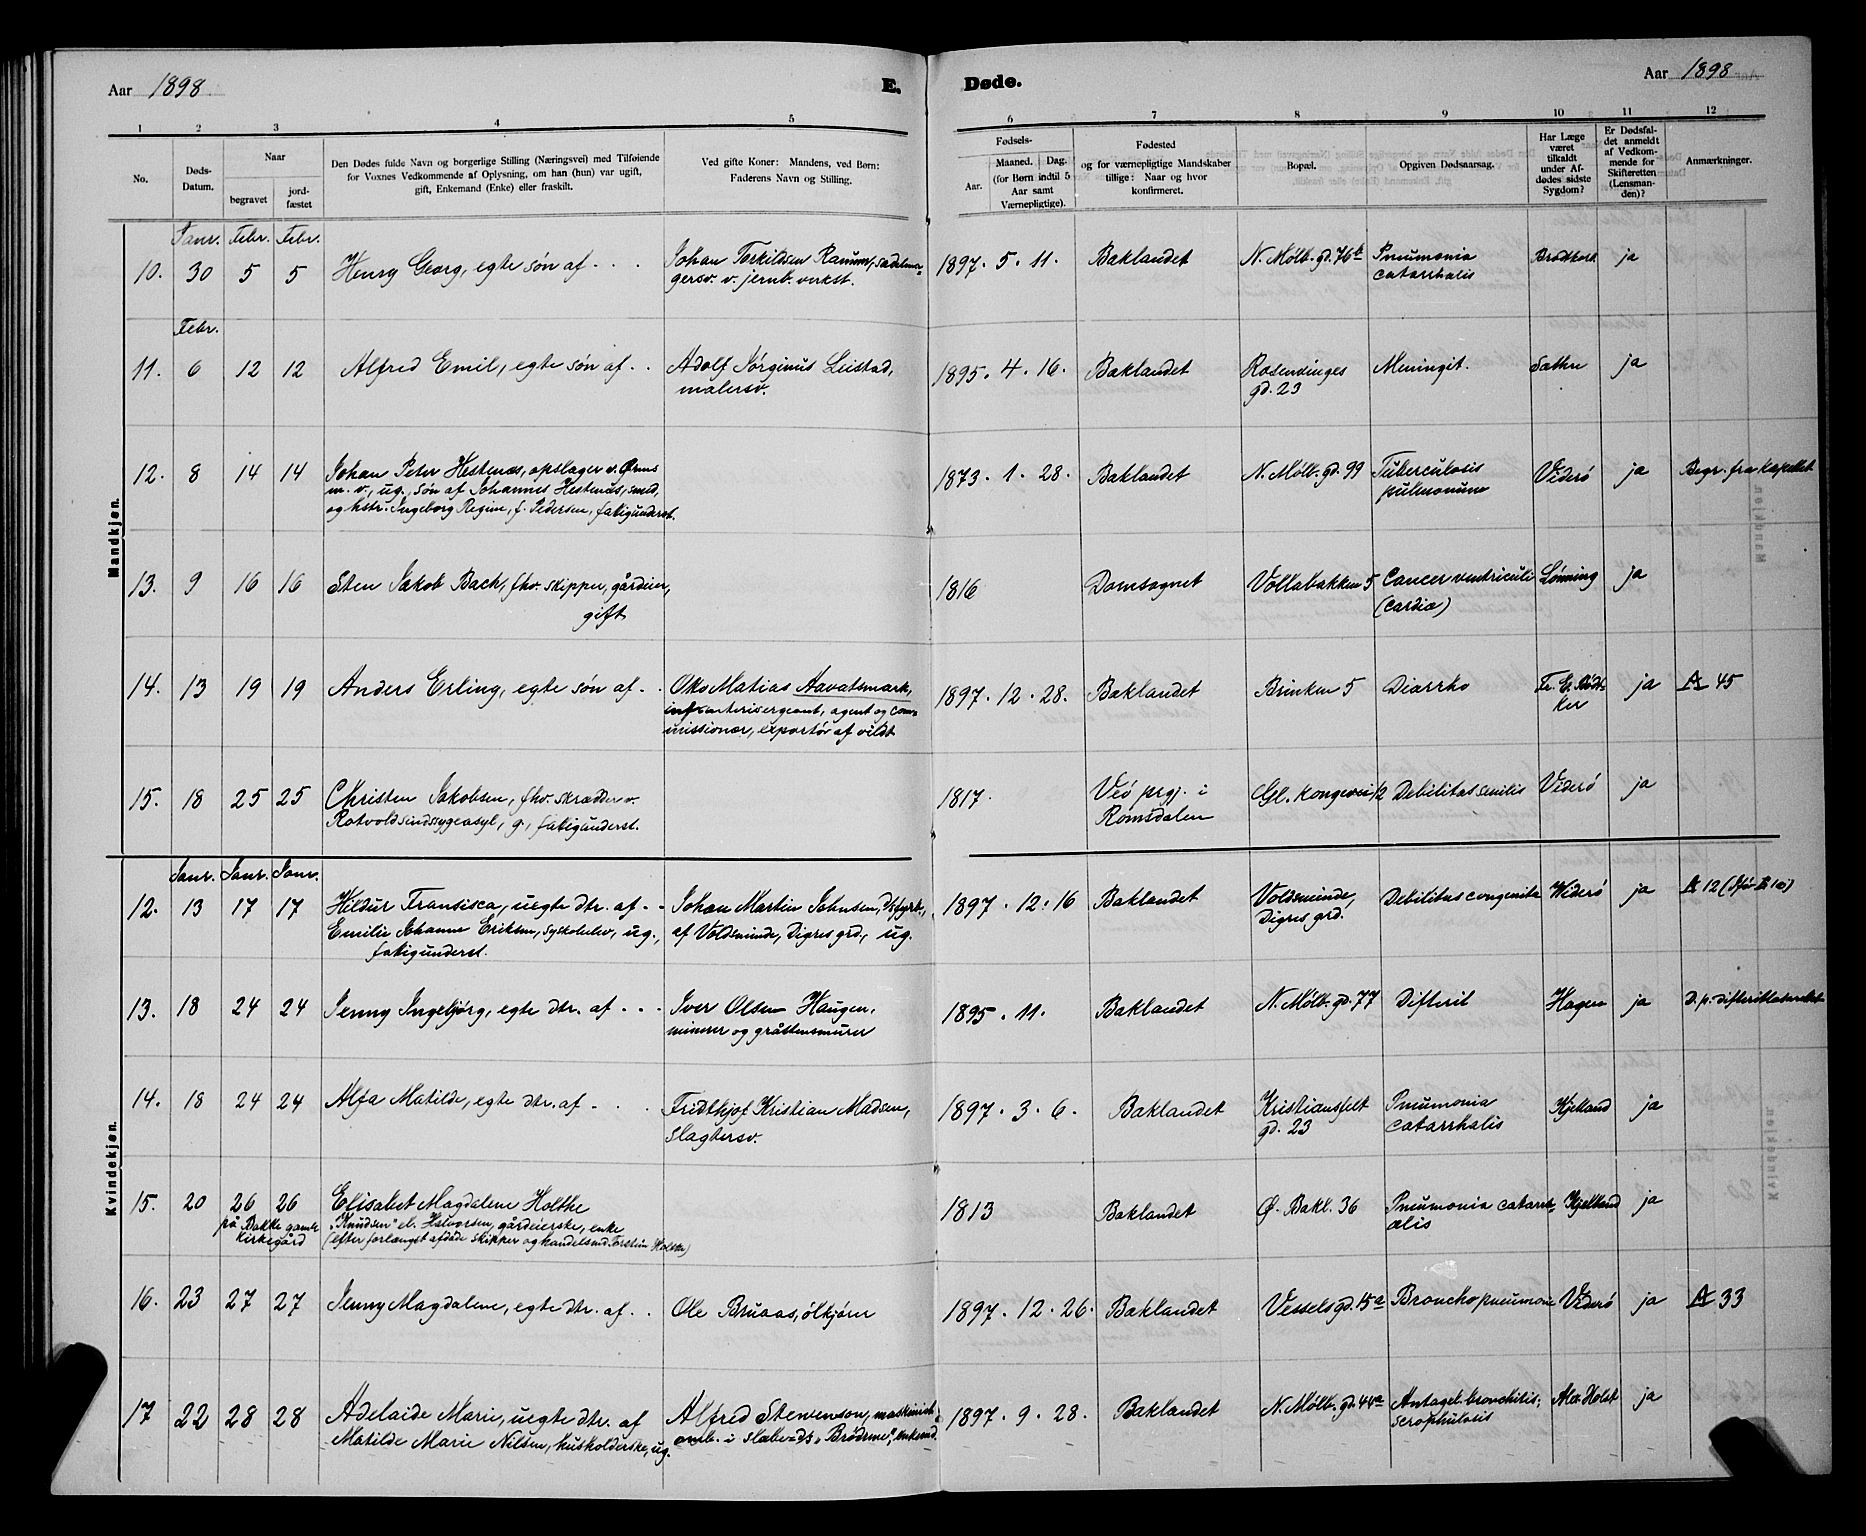 Aar 1898
E. Døde.
Aar 1898
1 2 3 4 5 6 7 8 9 10 11 12
No.
Døds-Datum.
Naar
begravet
jord-fæstet
Den Dødes fulde Navn og borgerlige Stilling (Næringsvei) med Tilføiende
for Voxnes Vedkommende af Oplysning, om han (hun) var ugift,
gift, Enkemand (Enke) eller fraskilt.
Ved gifte Koner: Mandens, ved Børn:
Faderens Navn og Stilling.
Fødsels-
Aar.
Maaned. Dag.
(for Børn indtil 5
Aar samt
Værnepligtige).
Fødested
og for værnepligtige Mandskaber
tillige: Naar og hvor
konfirmeret.
Bopæl.
Opgiven Dødsaarsag.
Har Læge
været
tilkaldt
under Af-
dødes sidste
Sygdom?
Er Dødsfal-
det anmeldt
af Vedkom-
mende for
Skifteretten
(Lensman-
den)?
Anmærkninger.
Mandkjøn.
Janr. Febr. Febr.
10. 30 5 5 Henry Georg, egte søn af . . . Johan Torkildsen Ranum, sadelma-
gersv. v. jernb. verkst.
1897. 5. 11. Baklandet N. Mølb. gd. 76b Pneumonia
catarrhalis
Brodtkorb ja
Febr.
11. 6 12 12 Alfred Emil, egte søn af . . Adolf Jørginus Leistad,
malersv.
1895. 4. 16. Baklandet Rosenvinges
gd. 23
Meningit. Sæthre ja
12. 8 14 14 Johan Peter Hestenæs, opslager v. Ørens
m. v., ug., søn af Johannes Hestenæs, smed,
og hstr. Ingeborg Regine, f. Pedersen, fatigunderst.
1873. 1. 28. Baklandet N. Mølb. gd. 99 Tuberculosis
pulmonum
Viderø ja Begr. fra kapellet
13. 9 16 16 Sten Jakob Bach, fhv. skipper, gårdeier,
gift
1816 Domsognet Vollabakken 5 Cancer ventriculi
(cardia)
Lønning ja
14. 13 19 19 Anders Erling, egte søn af . . Oks Matias Aavatsmark,
infanterisergeant, agent og com-
missionær, exportør af vildt
1897. 12. 28. Baklandet Brinken 5 Diarrho ja A 45
15. 18 25 25 Christen Jakobsen, fhv. skrædder v.
Rotvold sindssygeasyl, g., fatigunderst.
1817. Veø prgj. i
Romsdalen
Gl. kongevei 12 Debilitas senilis Viderø ja
Kvindekjøn.
Janr. Janr. Janr.
12. 13 17 17 Hildur Fransisca, uegte dtr. af . . Johan Martin Johnsen, d/s fyrb.,
Emilie Johanne Eriksen, syskolelev, ug., af Voldsminde, Digres grd., ug.
fatigunderst.
1897. 12. 16 Baklandet Voldsminde,
Digres grd.
Debilitas congenita Widerø ja A 12
13. 18 24 24 Jenny Ingebjørg, egte dtr. af . . . Iver Olsen Haugen,
minerer og gråstensmurer
1895. 11. Baklandet N. Mølb. gd. 77 Difterit Hagen ja D. p. difteritlazarettet
14. 18 24 24 Alfa Matilde, egte dtr. af . . . Fridtkjof Kristian Madsen,
slagtersv.
1897. 3. 6. Baklandet Kristiansfelt
gd. 23
Pneumonia
catarrhalis
Kjelland ja
15. 20 26 26 Elisabet Magdalene Holthe
på Bakke gamle
kirkegård
"Knudsen" el. Halvorsen, gårdeierske, enke
(efter forlængst afdøde skipper og handelsmd. Torstein Holthe)
1813 Baklandet Ø. Bakl. 36 Pneumonia catarrh-
alis
Kjelland ja
16. 23 27 27 Jenny Magdalene, egte dtr. af . . Ole Bruaas, ølkjører
1897. 12. 26. Baklandet Vessels gd. 15a Bronchopneumoni Viderø ja A 33
17 22 28 28 Adelaide Marie, uegte dtr. af Alfred Stevenson, maskinist
Matilde Marie Nilsen, husholderske, ug. omb. i slæbe-ds "Brødrene", enkemd.
1897. 9. 28. Baklandet N. Mølb. gd. 44a Antagel. bronchitis;
scrophulosis
Alex. Holst ja